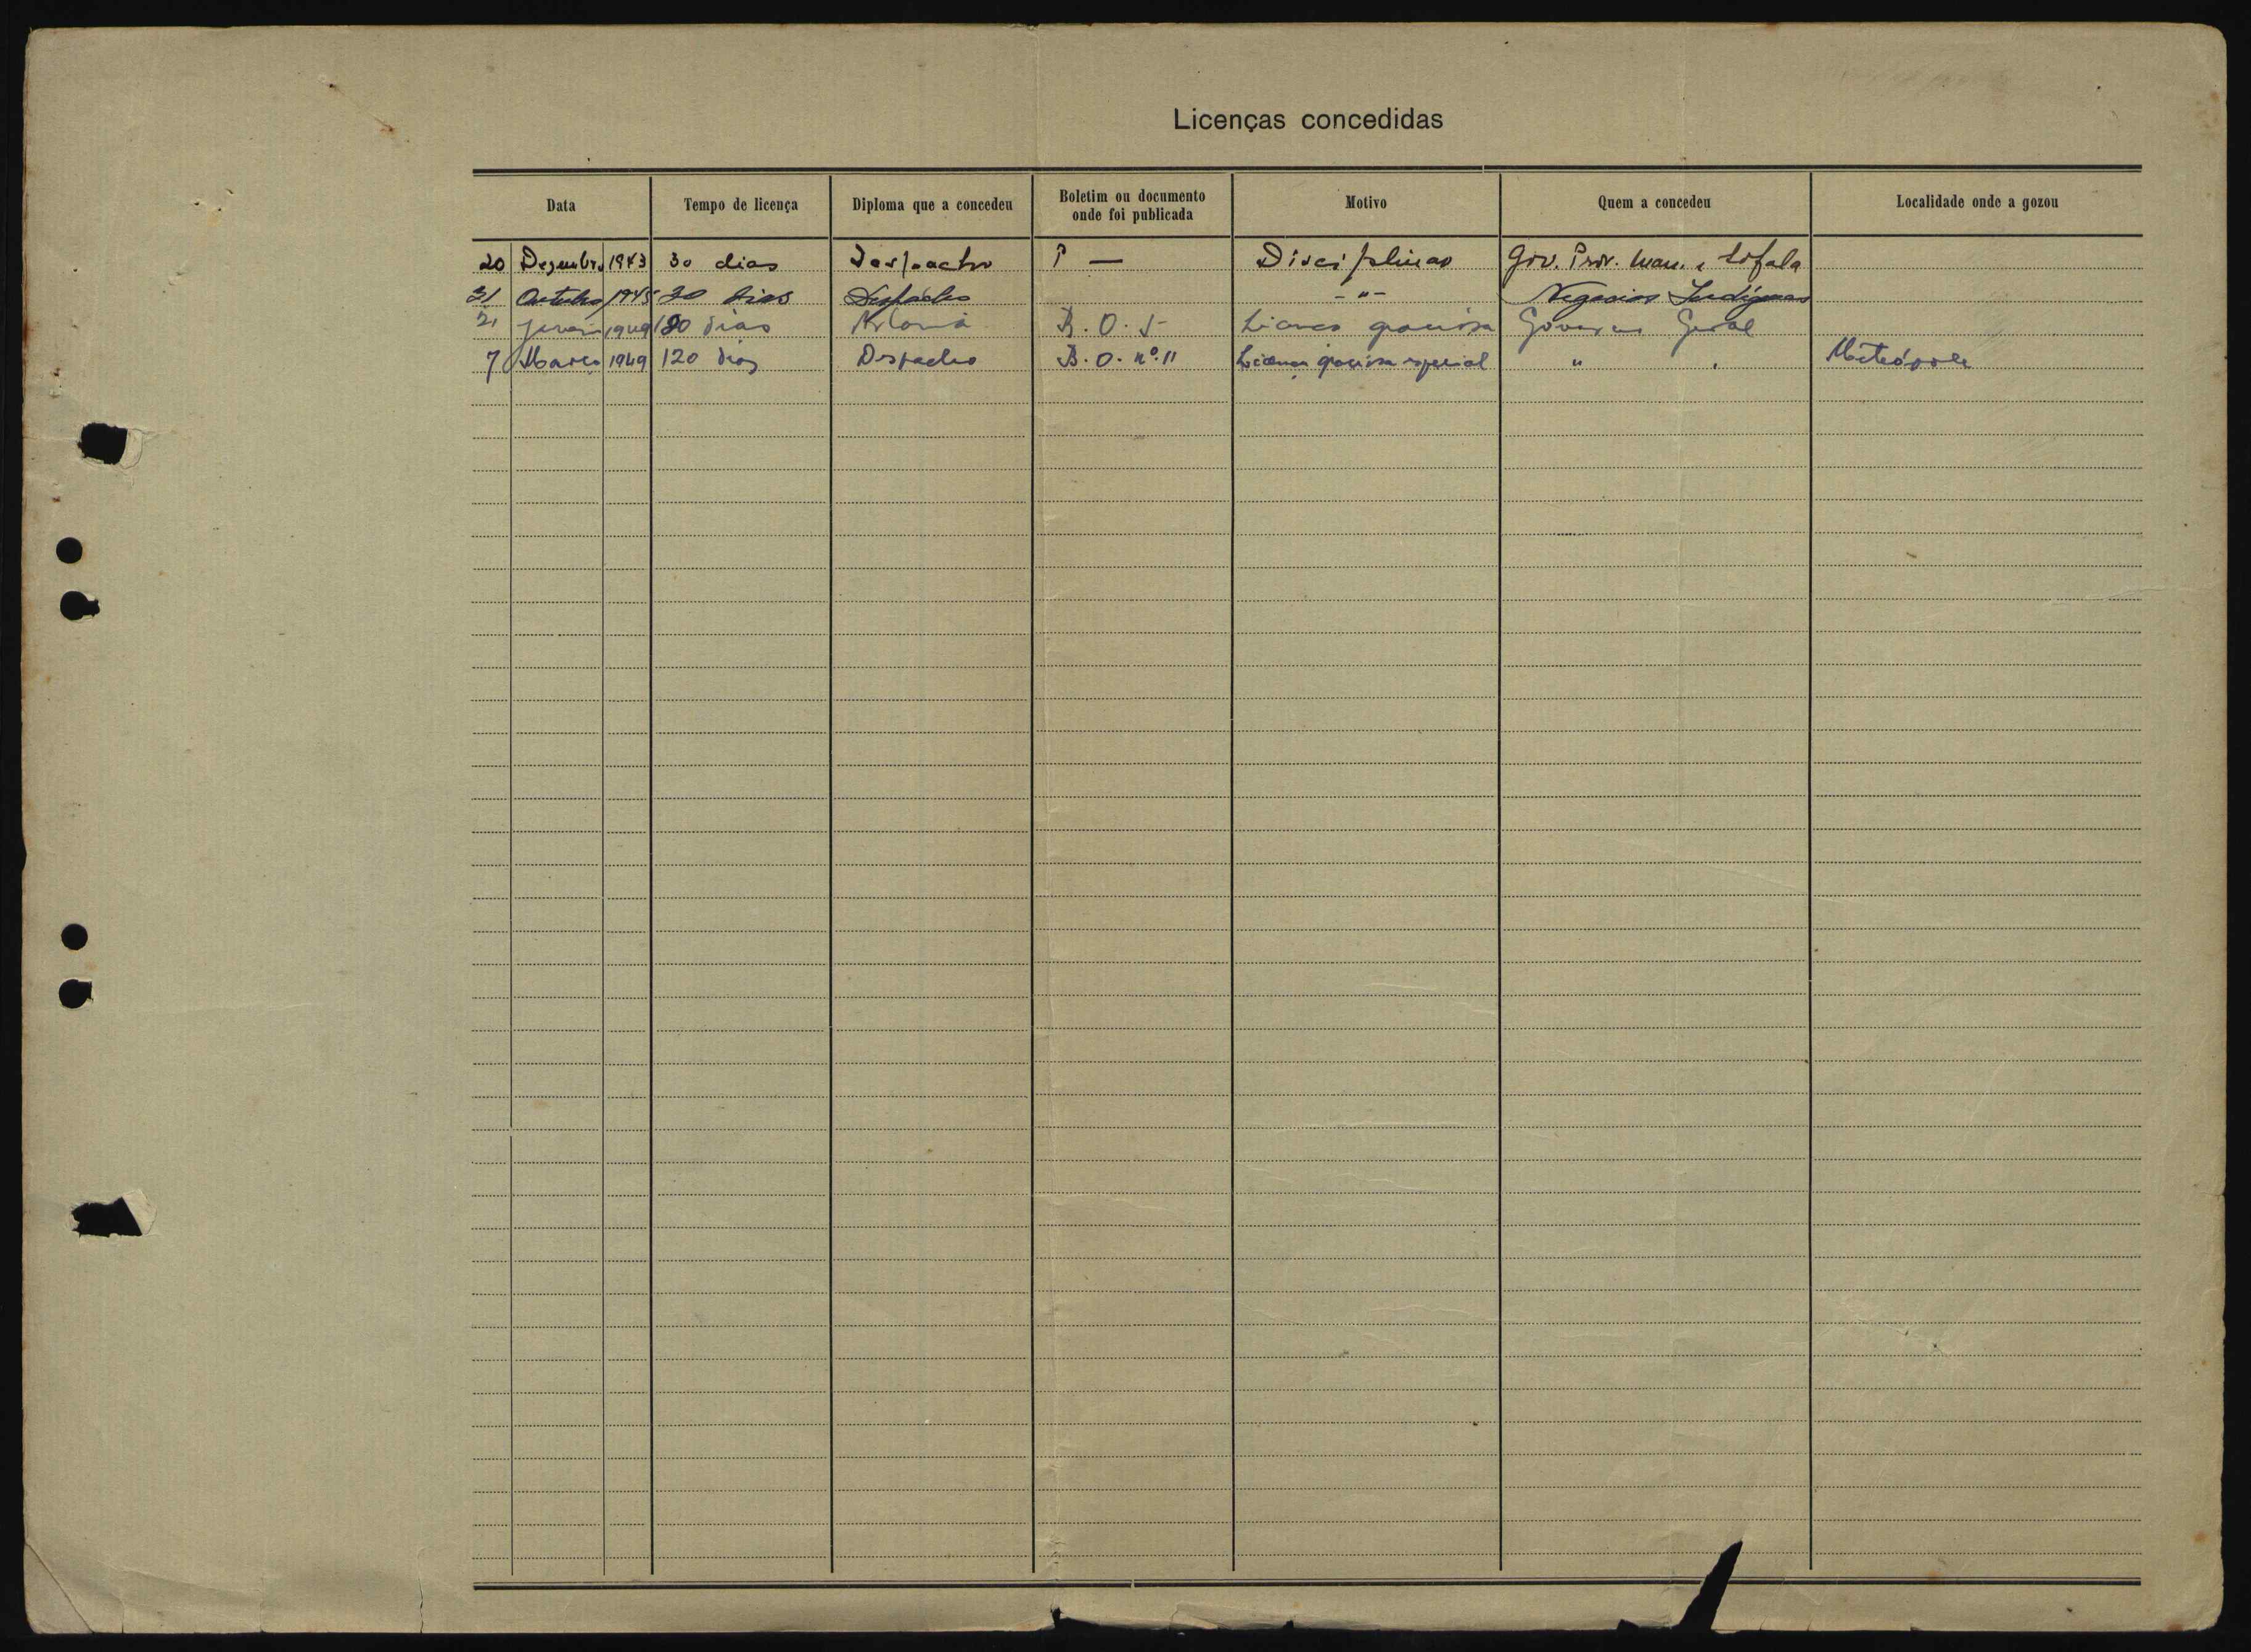 Licenças concedidas
Data Tempo de licença Diploma que a concedeu Boletim ou documento onde foi publicada Motivo Quem a concedeu Localidade onde a gozou
20 Dezembro 1943 30 dias Despacho — Disciplinar Gov. Prov. Man. e Sofala
31 Outubro 1945 30 dias Despacho -"- Negocios Indígenas
21 Janeiro 1949 180 dias Portaria B. O. 5 Licença graciosa Governo Geral
7 Março 1949 120 dias Despacho B. O. nº. 11 Licença graciosa especial " " Metrópole